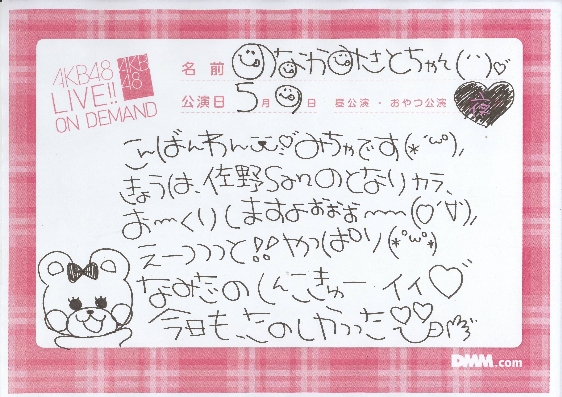 AKB48
LIVE!!
ON DEMAND
AKB
48
名前 のなかみさとちゃん(¨)♡
公演日 5月9日 昼公演・おやつ公演 夜
こんばんわん♡みちゃです(*´ω`)ノ
きょうは、佐野Sanのとなりカラ、
お〜くりしますよおぉぉ〜〜(○´∀`)ノ
えーっっっと!!やっぱり(*°ω°)
なみだのしんこきゅー イイ♡
今日も、たのしかった♡♡日
DMM.com